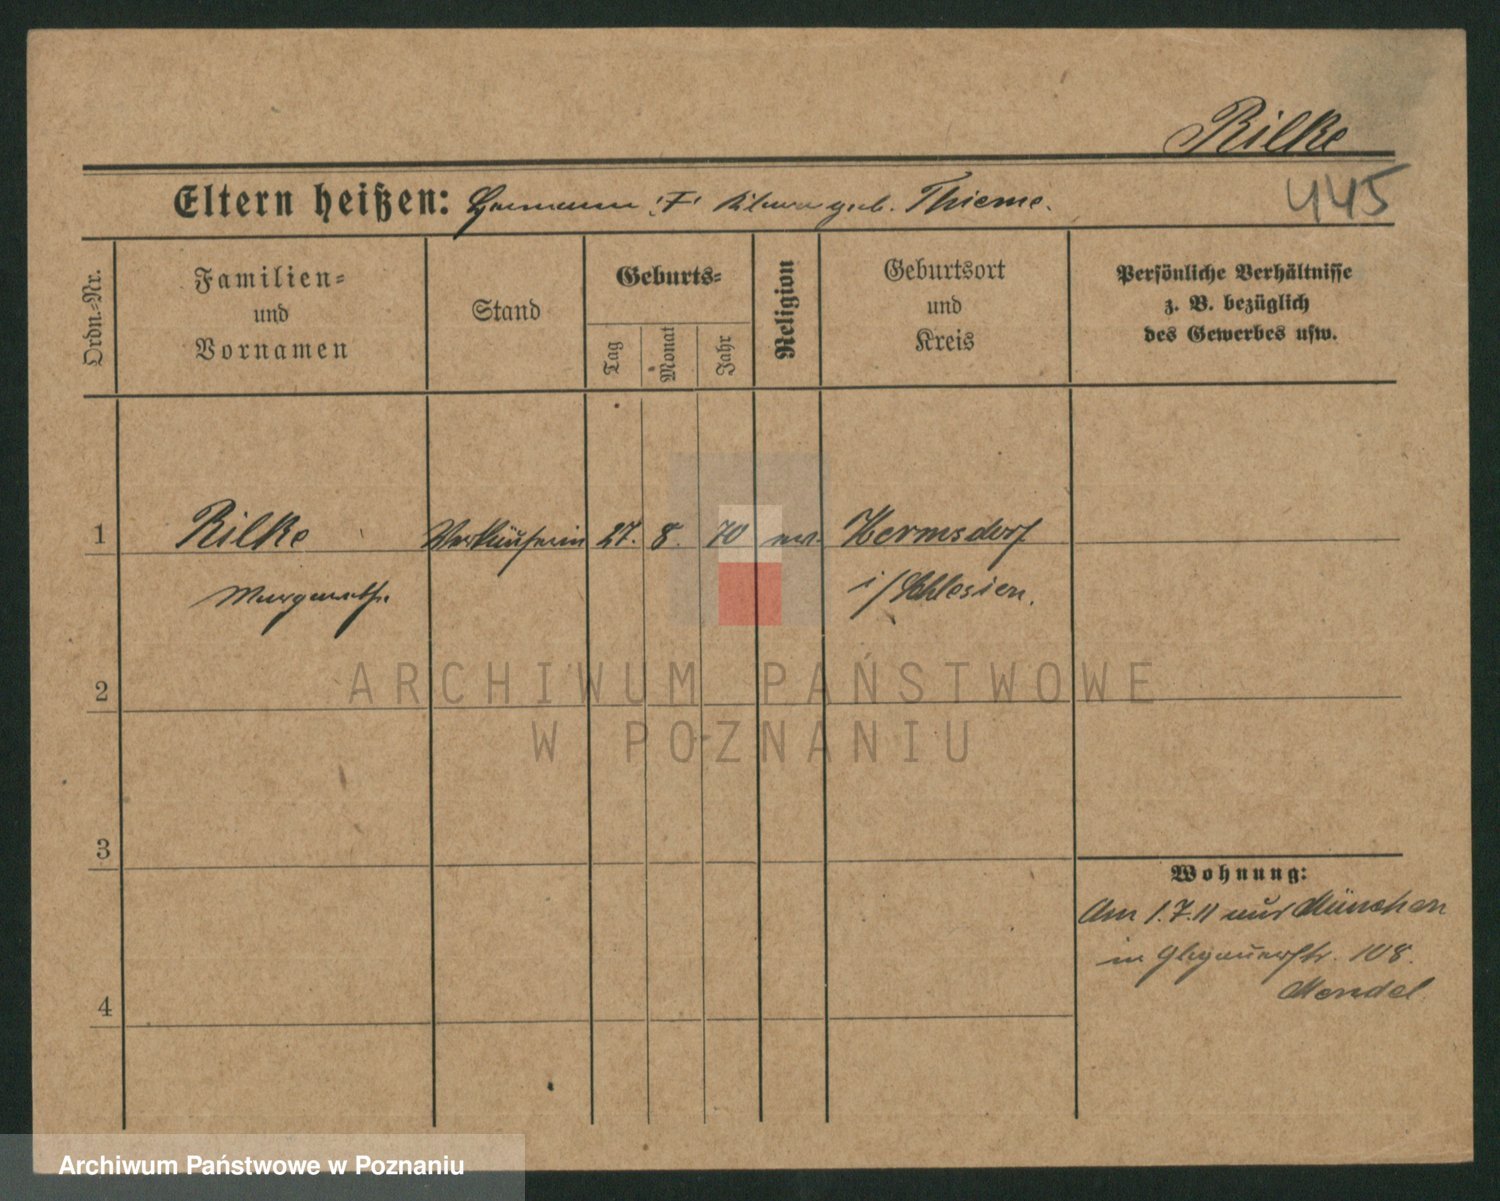 Rilke
445
Eltern heißen: Hermann geb. Thieme.
Ordn.-Nr.
Familien-
und
Vornamen
Stand
Geburts-
Tag
Monat
Jahr
Religion
Geburtsort
und
Kreis
Persönliche Verhältnisse
z. B. bezüglich
des Gewerbes usw.
1
Rilke
Verkäuferin
27.
8.
70
ev.
Hermsdorf
Margarethe
i/Schlesien.
2
ARCHIWUM PAŃSTWOWE
W POZNANIU
3
Wohnung:
Am 1.7.11 aus München
in Glogauerstr. 108.
Mendel
4
Archiwum Państwowe w Poznaniu